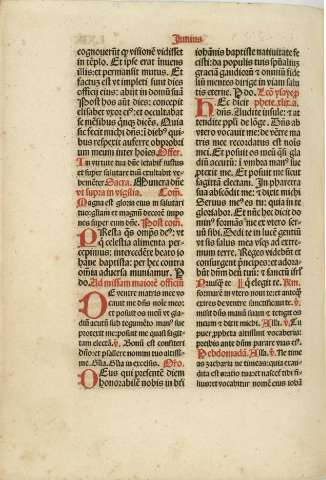 Junius
cognouerūt ꝙ visionē vidisset
in tēplo. Et ipse erat innuens
illis: et permansit mutus. Et
factus est vt impleti sunt dies
officij eius: abijt in domū suā
Post hos aūt dies: concepit
elisabet vxor eiꝰ: et occultabat
se mēsibus quinqȝ dicens. Quia
sic fecit michi dn̄s: ī diebꝰ qui-
bus respexit auferre obprobri
um meum inter hoīes Offer.
In virtute tua dn̄e letabit̄ iustus
et super salutare tuū exultabit ve-
hemēter Secra. Munera dn̄e
vt supra in vigilia. Com̄.
Magna est gloria eius in salutari
tuo: gloriam et magnū decorē impo-
nes super eum dn̄e. Post com̄.
Presta qs̄ omps̄ deꝰ: vt
q̄ celestia alimenta per-
cepimus: intercedēte beato io
hāne baptista: per hec contra
omnia aduersa muniamur. P
do. Ad missam maiorē officiū
De ventre matris mee vo
cauit me dn̄s noīe meo:
et posuit os meū vt gla-
diū acutū sub tegumēto manꝰ sue
protexit me: posuit me quasi sagit-
tam electā. ℣. Bonū est confiteri
dn̄o: et psallere nomini tuo altissi-
me. Glīa. Glīa in excelsis. Oro.
Deus qui presentē diem
honorabilē nobis in bt̄i
iohānis baptiste natiuitate fe
cisti: da populis tuis spūalium
graciā gaudiorū: et omniū fide
liū mentes dirige in viam salu
tis eterne. P do. Lc̄o ysaye p
Hec dicit phete. xlix. a.
dn̄s. Audite insule: et at
tendite ppl̄i de lōge. Dn̄s ab
vtero vocauit me: de vētre ma
tris mee recordatus est noīs
mei. Et posuit os meū qī gla
diū acutū: ī vmbra manꝰ sue
ptexit me. Et posuit me sicut
sagittā electam. In pharetra
sua abscōdit me: et dixit michi
Seruus meꝰ es tu: quia in te
gloriabor. Et nūc hec dicit do
minꝰ formās me ex vtero ser-
uū sibi. Dedi te in lucē gentiū
vt sis salus mea vsqȝ ad extre-
mum terre. Reges videbūt et
consurgent pn̄cipes: et adora-
būt dn̄m deū tuū: et sanctū isrl̄
Priusqȝ te qui elegit te.
formarē in vtero noui te: et anteqȝ
exires de ventre sanctificaui te. ℣.
misit dn̄s manū suam et tetigit os
meum et dixit michi. Alla. ℣. Tu
puer ppheta altissimi vocaberis:
preibis ante dn̄m parare vias eiꝰ.
Hebdomadā. Alla. ℣. Ne time
as zacharia ne timeas: quia exau-
dita est oratio tua: et nascet̄ tibi fi-
lius: et vocabitur nomē eius iohā